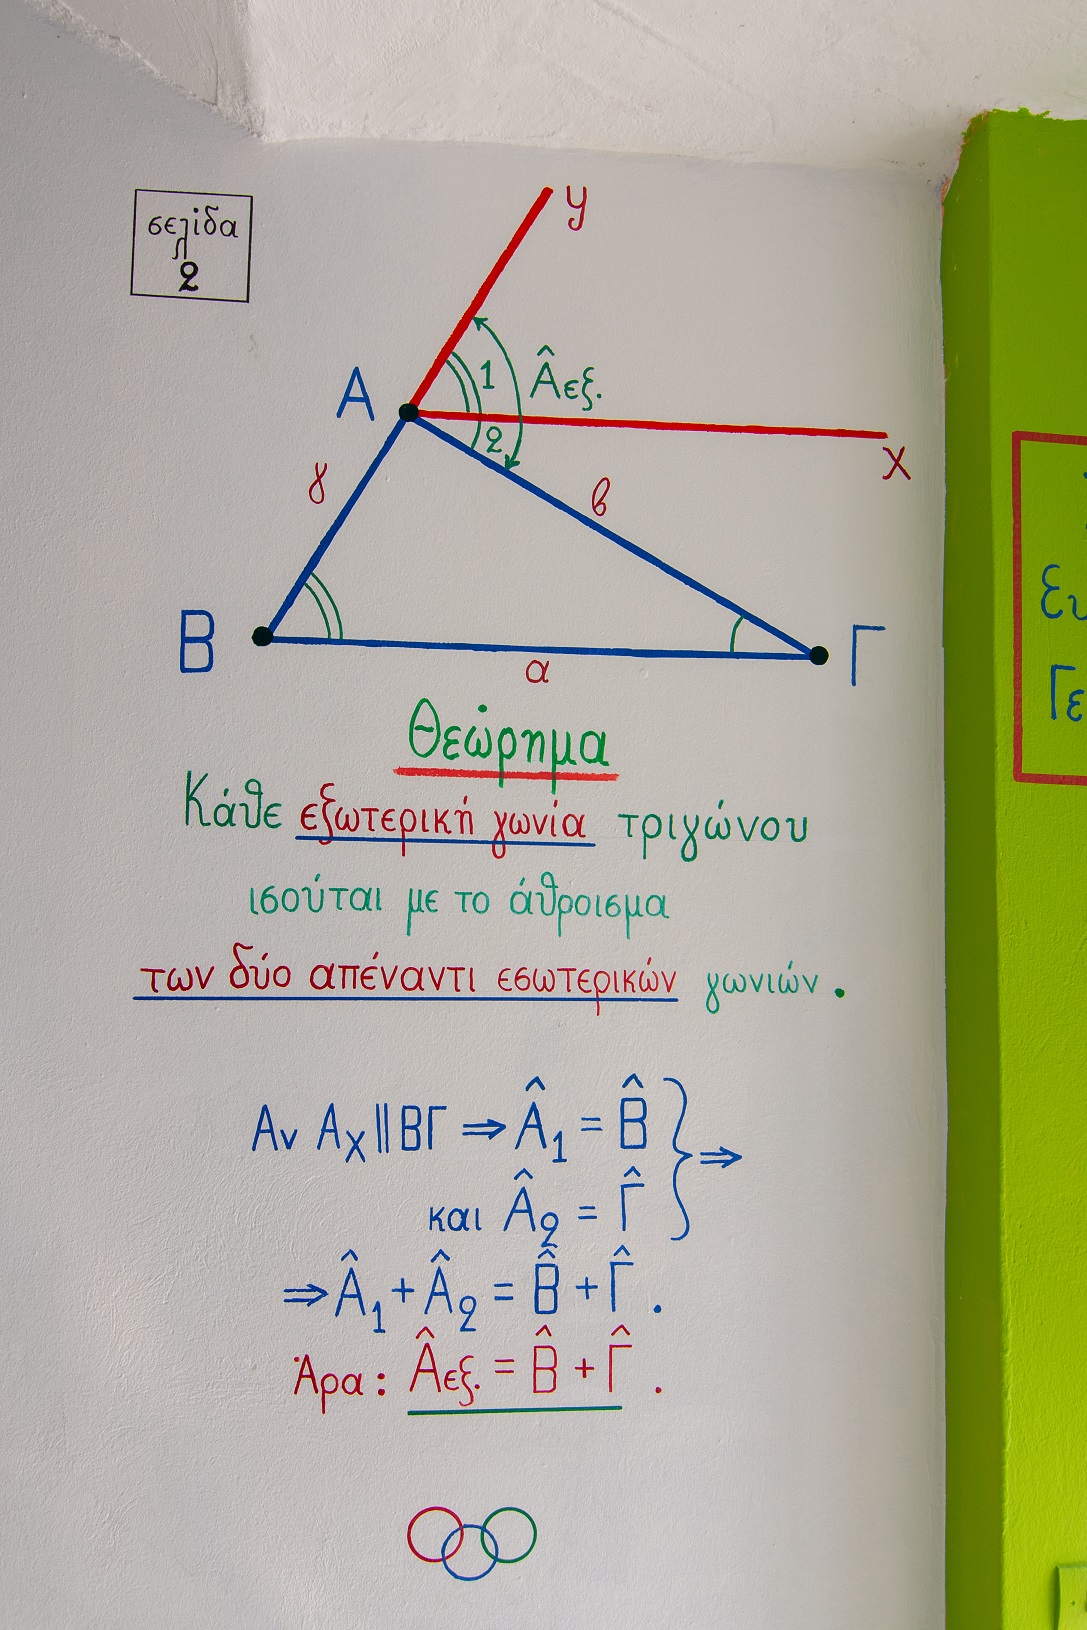 σελίδα
2
y
1
Âεξ.
A
2
x
γ
β
B
Γ
α
Θεώρημα
Κάθε εξωτερική γωνία τριγώνου
ισούται με το άθροισμα
των δύο απέναντι εσωτερικών γωνιών.
Αν Αx || ΒΓ ⇒ Â₁ = B̂ } ⇒
και Â₂ = Γ̂
⇒ Â₁ + Â₂ = B̂ + Γ̂ .
Άρα: Âεξ. = B̂ + Γ̂ .